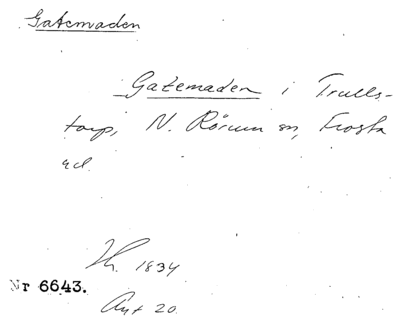 Gatemaden
Gatemaden i Trulls-
torp, N. Rörum sn, Frosta
hd.
1834
Nr 6643.
20.